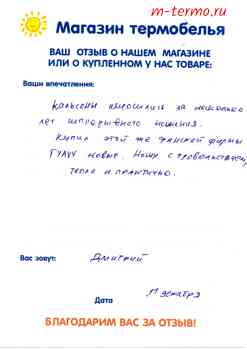 m-termo.ru
Магазин термобелья
ВАШ ОТЗЫВ О НАШЕМ МАГАЗИНЕ
ИЛИ О КУПЛЕННОМ У НАС ТОВАРЕ:
Ваши впечатления:
Кальсоны износились за несколько
лет непрерывного ношения.
Купил этой же финской фирмы
ГУАУУ новые. Ношу с удовольствием,
тепло и практично.
Вас зовут: Дмитрий
Дата 11 декабря
БЛАГОДАРИМ ВАС ЗА ОТЗЫВ!